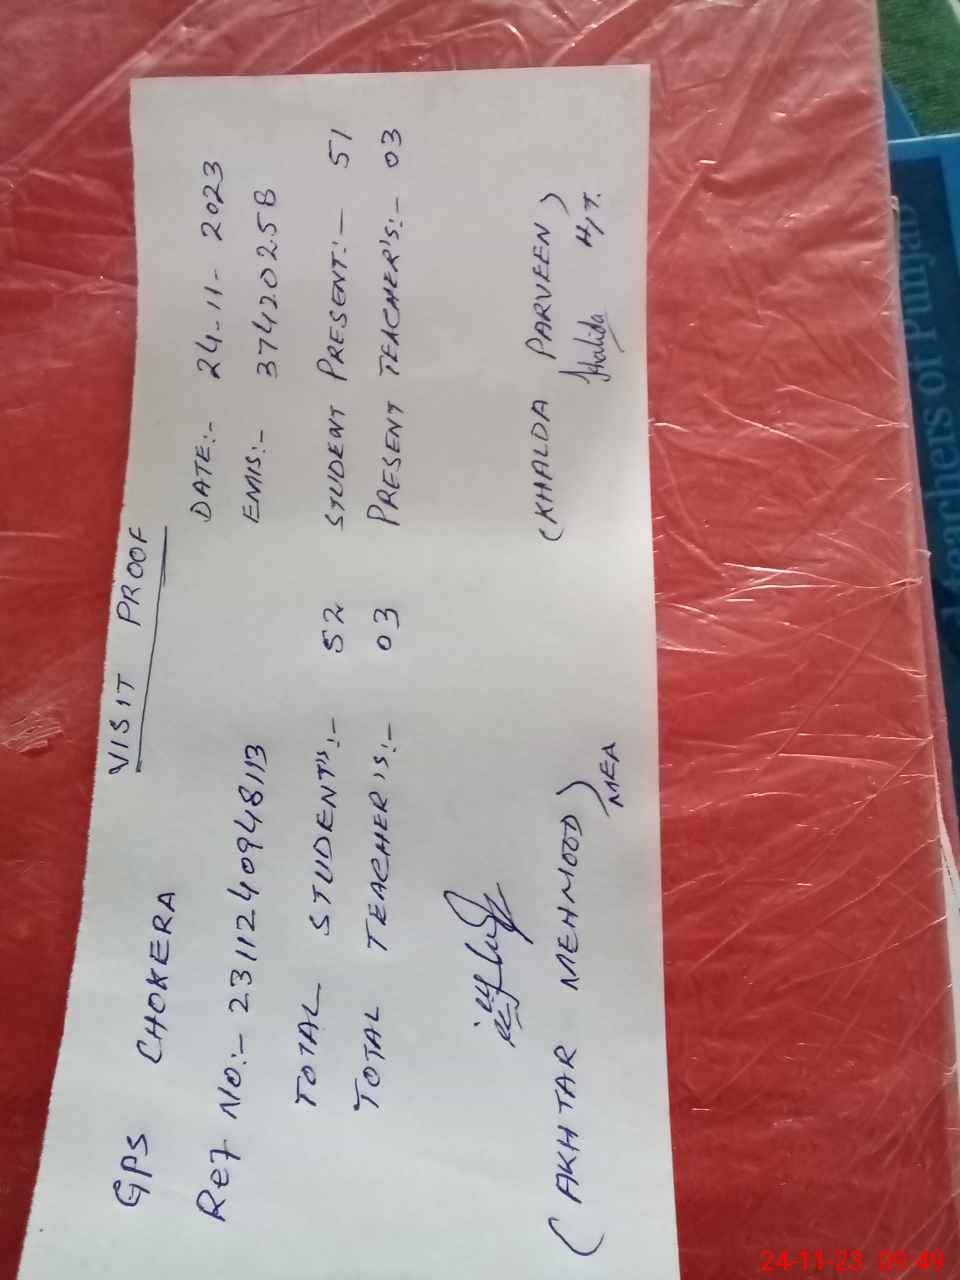 VISIT PROOF
GPS CHOKERA DATE:- 24-11-2023
Ref NO:- 2311240948113 EMIS:- 37420258
TOTAL STUDENT'S:- 52 STUDENT PRESENT:- 51
TOTAL TEACHER'S:- 03 PRESENT TEACHER'S:- 03
(AKHTAR MEHMOOD) (KHALDA PARVEEN)
MEA Khalida H/T.
teachers of Punjab
24-11-23 09:49